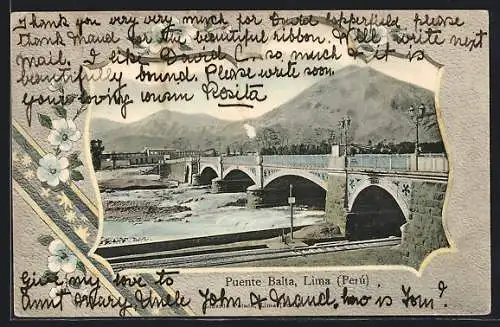 Thank you very very much for David Copperfield please
thank Maud for the beautiful ribbon. Will write next
mail. I like David C. so much & it is
beautifully bound. Please write soon
your loving cousin Rosita
Puente Balta, Lima (Perú)
Give my love to
Aunt Mary Uncle John & Maud, how is Tom?